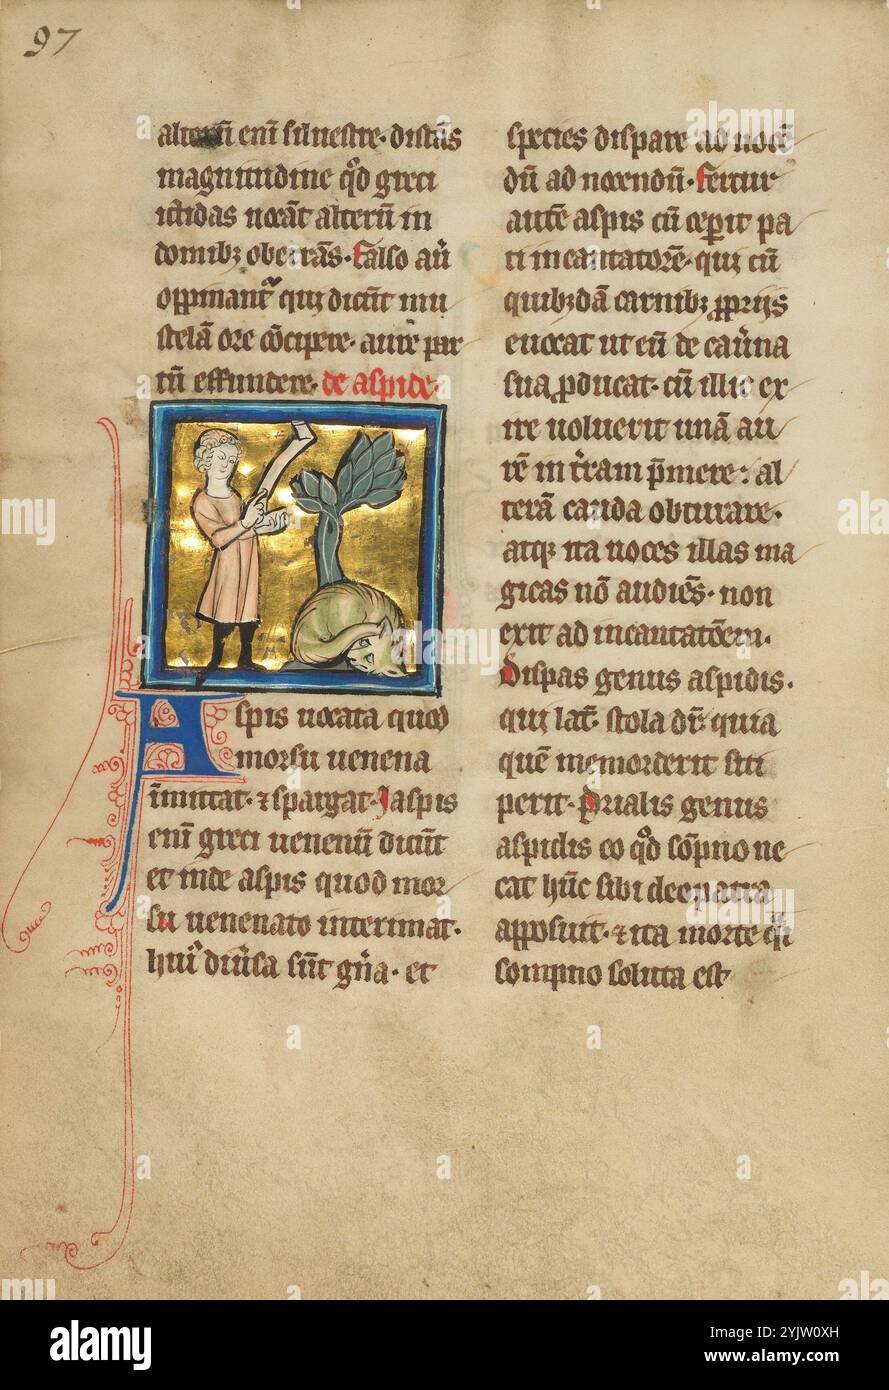 97
alterū enī silueſtre· diſtās
magnitudine q̄d greci
ictidas uocāt alterū in
domibꝫ oberrās· Falſo aūt
oppinantᷣ qui dicūt mu
ſtelā ore cōcipere· aure par
tū effundere· de aſpide·
Aſpis uocata quod
morſu uenena
īmittat· ⁊ ſpargat· Jaſpis
enī greci uenenū dicūt
et inde aſpis quod mor
ſu uenenato interimat·
huiꝰ diu̾ſa ſūt gn̄a· et
ſpecies diſpare ad nocē
dū ad nocendū· Fertur
autē aſpis cū ceꝑit pa
ti incantatorē· qui cū
quibꝫdā carnibꝫ ꝓprijs
euocat ut eū de cau̾na
ſua ꝓducat· cū illic ex
ire uoluerit unā au
rē in t̾ram p̄mere: al
terā cauda obturare·
atqꝫ ita uoces illas ma
gicas nō audiēs· non
exit ad incantatōem·
Diſpas genus aſpidis·
qui lat̄· ſtola dr̄· quia
quē memorderit ſiti
perit· Prialis genus
aſpidis eo q̄d ſōpno ne
cat hūc ſibi cleopatra
appoſuit· ⁊ ita morte qᷓſi
ſompno ſoluta eſt
alamy
Image ID: 2YJW0XH
www.alamy.com